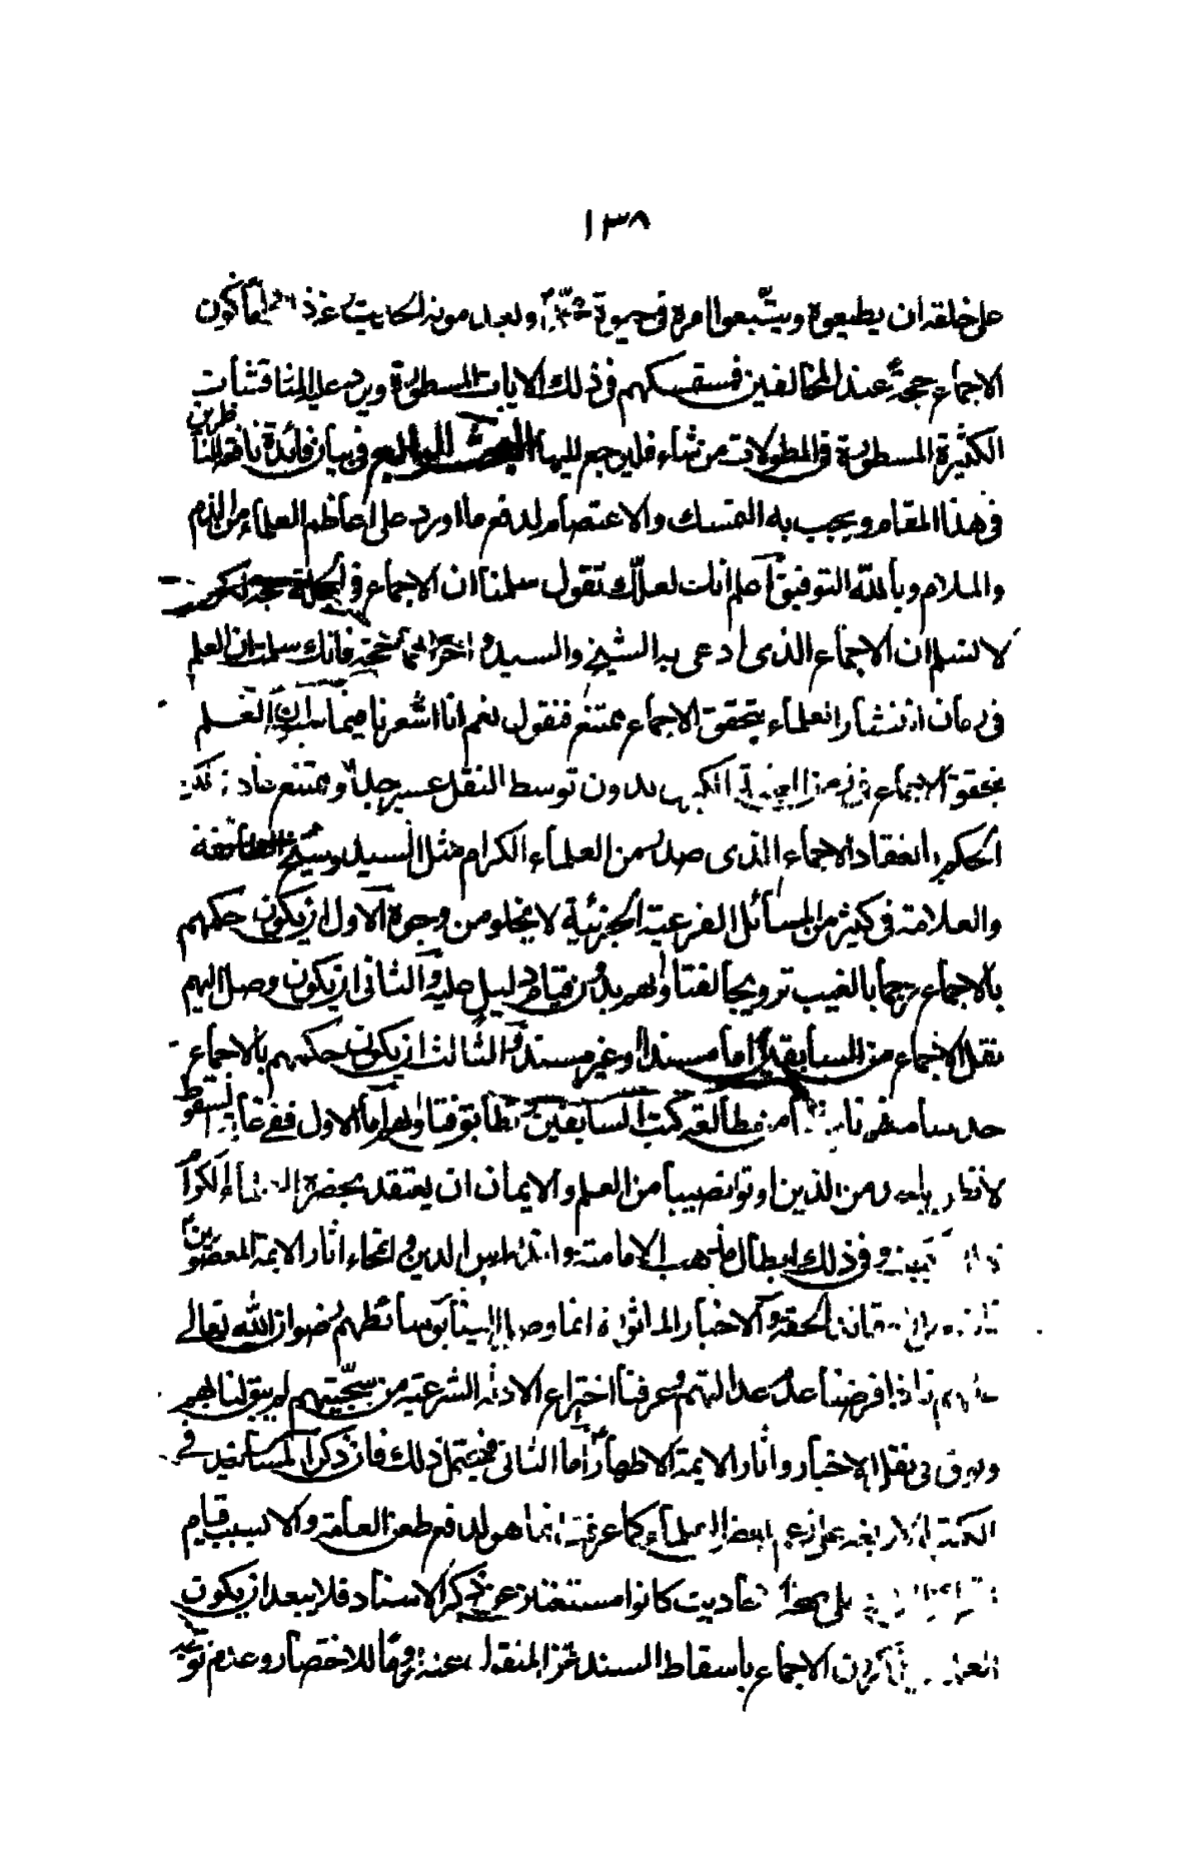 ١٣٨
على خلقه ان يطيعوه ويتّبعوا امره في حيوة وبعد موته
الاجماع حجة عند المخالفين فمتمسكهم في ذلك الايات المسطورة ويرد عليه المناقشات
الكثيرة المسطورة في المطولات من شاء فليرجع اليها البحث الرابع في بيان فائدة نافعة للناظرين
في هذا المقام ويجب به التمسك والاعتصام لدفع ما اورد على اعاظم العلماء من الذم
والملام وبالله التوفيق اعلم انك لعلّك تقول سلمنا ان الاجماع في الجملة حجة لكن
لا نسلم ان الاجماع الذي ادعى به الشيخ والسيد حجة فانك سلمت ان العلم
في زمان انتشار العلماء بتحقق الاجماع ممتنع فنقول نعم انا اشعرنا فيما سبق ان العلم
بتحقق الاجماع في زمن الغيبة الكبرى بدون توسط النقل عسير جدا او ممتنع عادة لكن
الحكم بانعقاد الاجماع الذي صدر من العلماء الكرام مثل السيد وشيخ الطائفة
والعلامة في كثير من المسائل الفرعية الجزئية لا يخلو من وجوه الاول ان يكون حكمهم
بالاجماع رجما بالغيب ترويجا لفتاويهم بدون قيام دليل عليه والثاني ان يكون وصل اليهم
نقل الاجماع من السابقين اما مسندا او غير مسند والثالث ان يكون حكمهم بالاجماع
حدسا من مطالعة كتب السابقين وتطابق فتاويهم اما الاول ففي غاية السقوط
لا من الذين اوتوا نصيبا من العلم والايمان ان يعتقد بحضرة العلماء الكرام
وفي ذلك ابطال مذهب الامامية واندراس الدين وانمحاء اثار الايمة المعصومين
الحقة والاخبار الماثورة انما وصل الينا بوسائطهم رضوان الله تعالى
عليهم فاذا فرضنا عدم عدالتهم وعرفنا اختراع الادلة الشرعية من سجيّتهم لم يبق لنا بهم
وثوق في نقل الاخبار واثار الايمة الاطهار اما الثاني فيحتمل ذلك فان ذكر المسانيد في
الكتب الاربعة على زعم بعض العلماء كما عرفت انما هو لدفع طعن العامة والا لسبب قيام
كانوا مستغنين عن ذكر الاسناد فلا يبعد ان يكون
الاجماع باسقاط السند عن المنقول عنه روما للاختصار وعدم